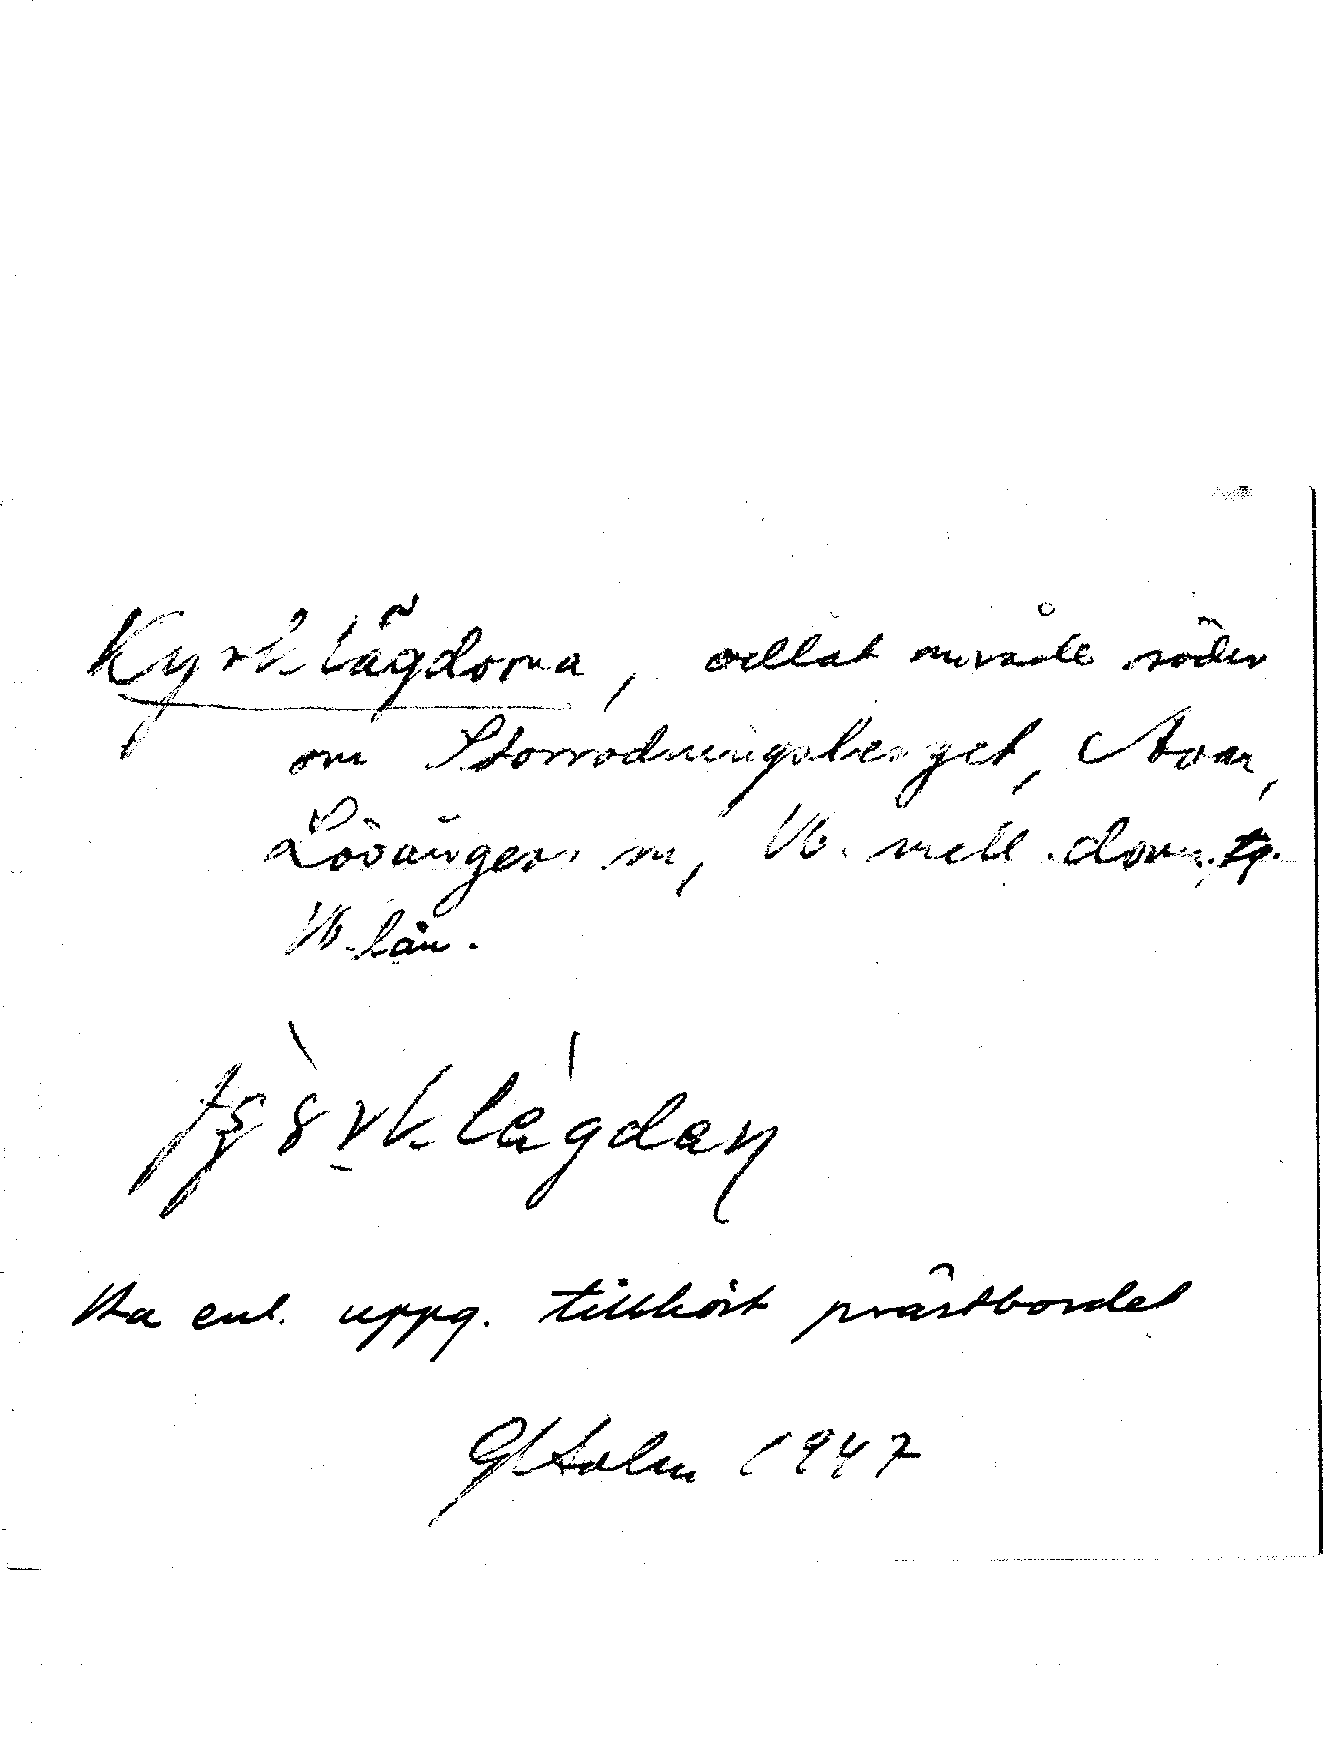 Kyrklägdorna, odlat område söder
om Storrödningsberget, Avan,
Lövångers sn, Vb. mell. doms. tg.
Vb. län.
lägdan
Ha enl. uppg. tillhört prästbordet
G Holm 1947